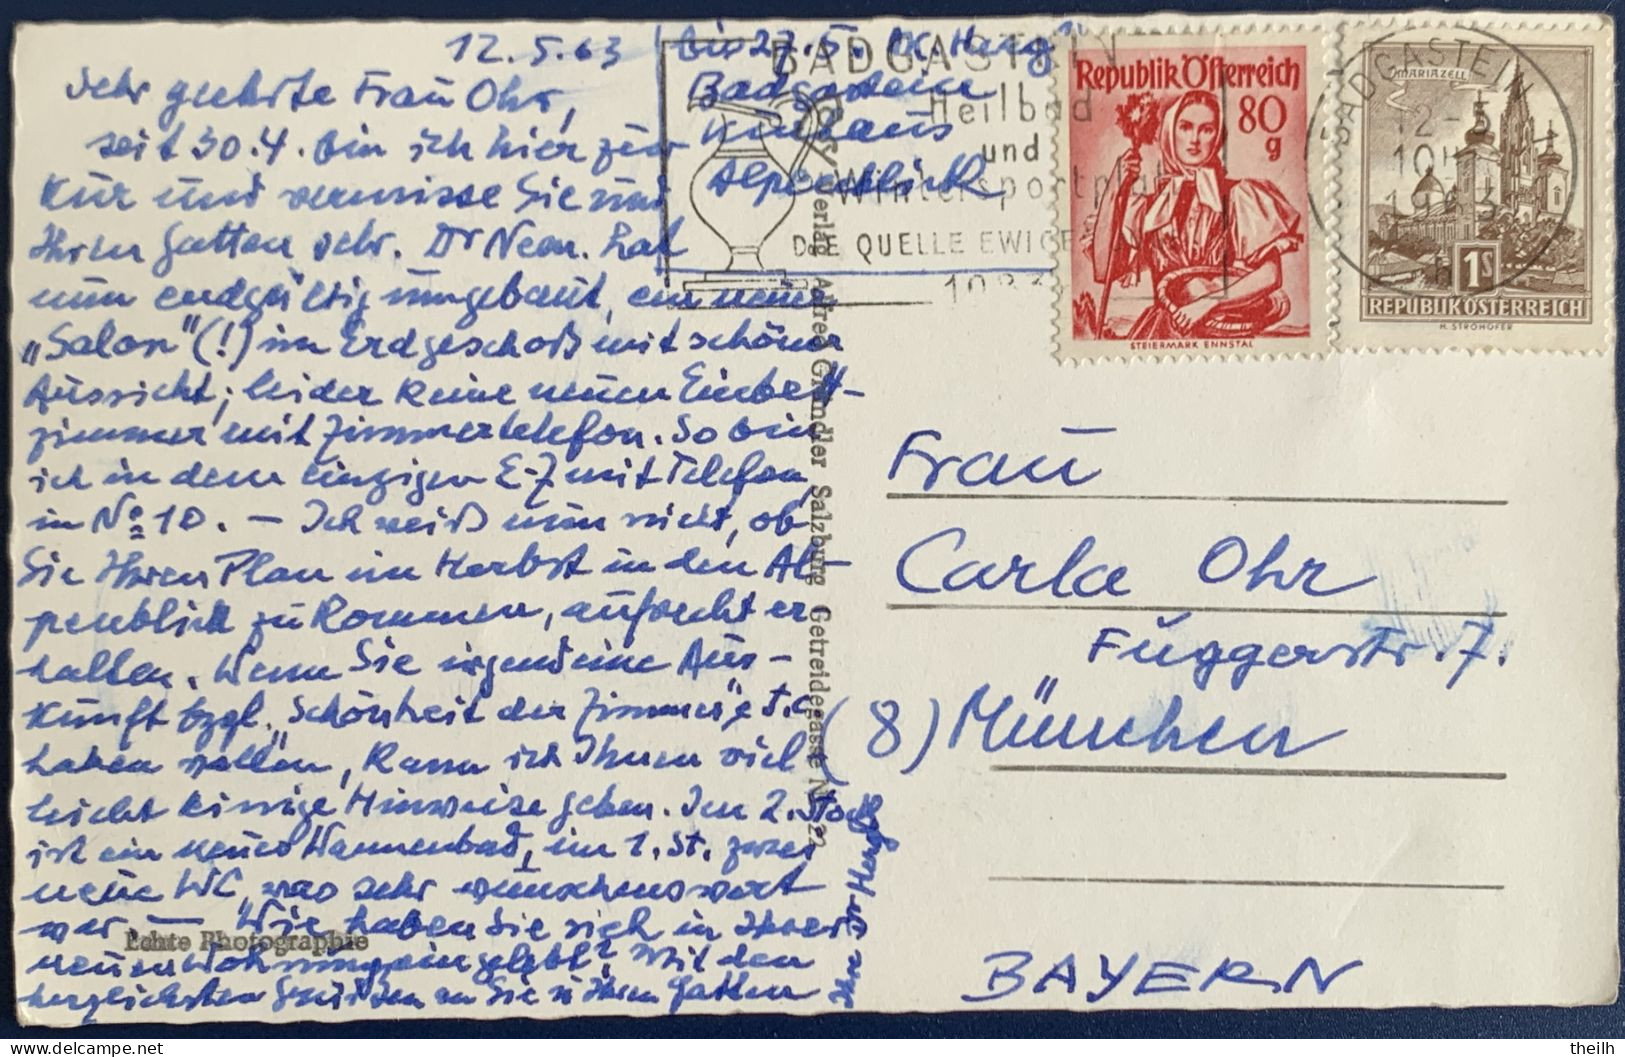 12.5.63
bis 27.5.
Badgastein
Kurhaus
Alpenblick
Sehr geehrte Frau Ohr,
seit 30.4. bin ich hier zur
Kur und vermisse Sie und
Ihren Gatten sehr. Dr Neum. hat
nun endgültig umgebaut, ein neuer
„Salon" (!) im Erdgeschoß mit schöner
Aussicht; leider keine neuen Einbett-
zimmer mit Zimmertelefon. So bin
ich in dem einzigen E-Z mit Telefon,
in No 10. – Ich weiß nun nicht, ob
Sie Ihren Plan im Herbst in den Al-
penblick zu kommen, aufrecht er
halten. Wenn Sie irgendeine Aus-
kunft bzgl. „Schönheit der Zimmer" etc
haben wollen, kann ich Ihnen viel
leicht einige Hinweise geben. Im 2. Stock
ist ein neues Wannenbad, im 1. St. zwei
neue WC, was sehr wünschenswert
war. – Wie haben Sie sich in Ihrer
neuen Wohnung eingelebt? Mit den
herzlichsten Grüßen an Sie u Ihren Gatten
Ihr Dr
Echte Photographie
Verlag Andres Grundler Salzburg Getreidegasse Nr. 22
BADGASTEIN
Heilbad
und
Wintersportplatz
DIE QUELLE EWIGER
Republik Österreich
80
g
STEIERMARK ENNSTAL
BADGASTEIN
12-5
10
1963
MARIAZELL
1S
REPUBLIK ÖSTERREICH
H. STROHOFER
Frau
Carla Ohr
Fuggerstr. 7.
(8) München
BAYERN
theilh